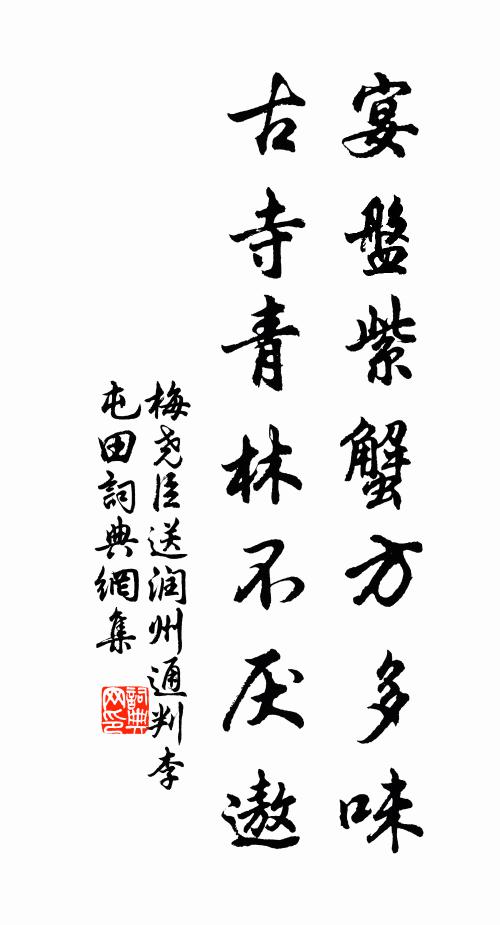 宴盤紫蟹方多味
古寺青林不厌遨
梅尧臣送润州通判李
屯田詞典網集
詞典网印